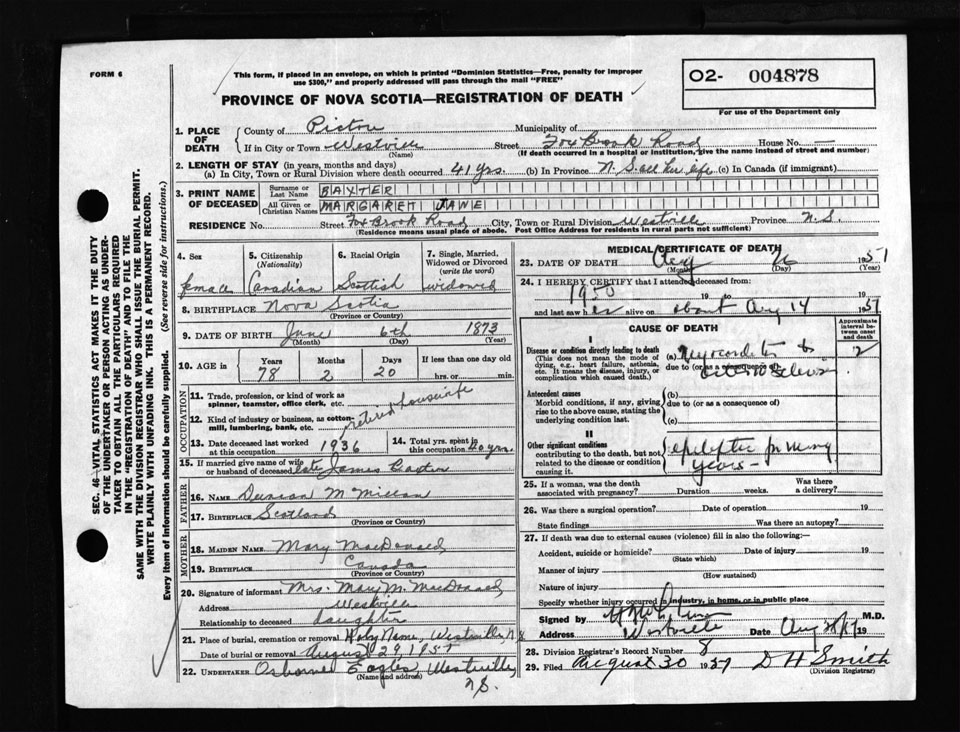 FORM 6
This form, if placed in an envelope, on which is printed "Dominion Statistics—Free, penalty for improper
use $300," and properly addressed will pass through the mail "FREE"
O2- 004878
For use of the Department only
PROVINCE OF NOVA SCOTIA—REGISTRATION OF DEATH
1. PLACE OF DEATH
County of Pictou Municipality of
If in City or Town Westville Street Fox Brook Road House No. —
(Name) (If death occurred in a hospital or institution, give the name instead of street and number)
2. LENGTH OF STAY (in years, months and days)
(a) In City, Town or Rural Division where death occurred 41 yrs. (b) In Province N. S. all her life (c) In Canada (if immigrant)
3. PRINT NAME OF DECEASED
Surname or Last Name BAXTER
All Given or Christian Names MARGARET JANE
RESIDENCE No. Street Fox Brook Road City, Town or Rural Division Westville Province N.S.
(Residence means usual place of abode. Post Office Address for residents in rural parts not sufficient)
4. Sex
female
5. Citizenship (Nationality)
Canadian
6. Racial Origin
Scottish
7. Single, Married, Widowed or Divorced (write the word)
widowed
8. BIRTHPLACE Nova Scotia
(Province or Country)
9. DATE OF BIRTH June 6th 1873
(Month) (Day) (Year)
10. AGE in Years Months Days If less than one day old
78 2 20 hrs. or min.
OCCUPATION
11. Trade, profession, or kind of work as spinner, teamster, office clerk, etc.
12. Kind of industry or business, as cotton-mill, lumbering, bank, etc.
retired housewife
13. Date deceased last worked at this occupation 1936
14. Total yrs. spent in this occupation 40 yrs.
15. If married give name of wife or husband of deceased late James Baxter
FATHER
16. NAME Duncan McMillan
17. BIRTHPLACE Scotland
(Province or Country)
MOTHER
18. MAIDEN NAME Mary MacDonald
19. BIRTHPLACE Canada
(Province or Country)
20. Signature of informant Mrs. Mary M. MacDonald
Address Westville
Relationship to deceased daughter
21. Place of burial, cremation or removal Holy Name, Westville, N.S
Date of burial or removal August 29, 1951
22. UNDERTAKER Osborne Eagles, Westville,
(Name and address)
N.S.
MEDICAL CERTIFICATE OF DEATH
23. DATE OF DEATH Aug 26 1951
(Month) (Day) (Year)
24. I HEREBY CERTIFY that I attended deceased from:
1950 19 to 19
and last saw her alive on about Aug 14 1951
CAUSE OF DEATH
Approximate interval between onset and death
I
Disease or condition directly leading to death
(This does not mean the mode of dying, e.g., heart failure, asthenia, etc. It means the disease, injury, or complication which caused death.)
(a) Myocarditis
due to (or as a consequence of)
2
Antecedent causes
Morbid conditions, if any, giving rise to the above cause, stating the underlying condition last.
(b)
due to (or as a consequence of)
(c)
II
Other significant conditions
contributing to the death, but not related to the disease or condition causing it.
epileptic for many
years —
25. If a woman, was the death associated with pregnancy? Duration weeks. Was there a delivery?
26. Was there a surgical operation? Date of operation 19
State findings Was there an autopsy?
27. If death was due to external causes (violence) fill in also the following:
Accident, suicide or homicide? Date of injury 19
(State which)
Manner of injury
(How sustained)
Nature of injury
Specify whether injury occurred in industry, in home, or in public place
Signed by M.D.
Address Westville Date Aug 28/51 19
28. Division Registrar's Record Number 8
29. Filed August 30 1951 D H Smith
(Division Registrar)
SEC. 46—VITAL STATISTICS ACT MAKES IT THE DUTY
OF THE UNDERTAKER OR PERSON ACTING AS UNDER-
TAKER TO OBTAIN ALL THE PARTICULARS REQUIRED
IN THE "REGISTRATION OF DEATH" AND TO FILE THE
SAME WITH THE DIVISION REGISTRAR WHO SHALL ISSUE THE BURIAL PERMIT.
WRITE PLAINLY WITH UNFADING INK. THIS IS A PERMANENT RECORD.
Every item of information should be carefully supplied. (See reverse side for instructions.)